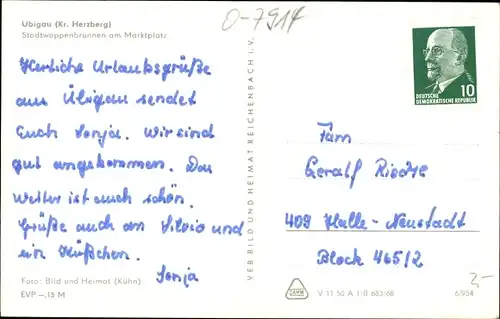 Ubigau (Kr. Herzberg)
Stadtwappenbrunnen am Marktplatz
O-7914
Herzliche Urlaubsgrüße
aus Übigau sendet
Euch Sonja. Wir sind
gut angekommen. Das
Wetter ist auch schön.
Grüße auch an Silvio und
ein Küßchen.
Sonja
Foto: Bild und Heimat (Kühn)
EVP -.15 M
VEB BILD UND HEIMAT REICHENBACH i. V.
10
DEUTSCHE
DEMOKRATISCHE REPUBLIK
Fam
Geralf
409 Halle-Neustadt
Block 465/2
V 11 50 A 1/B 683/68
6/954
2,-